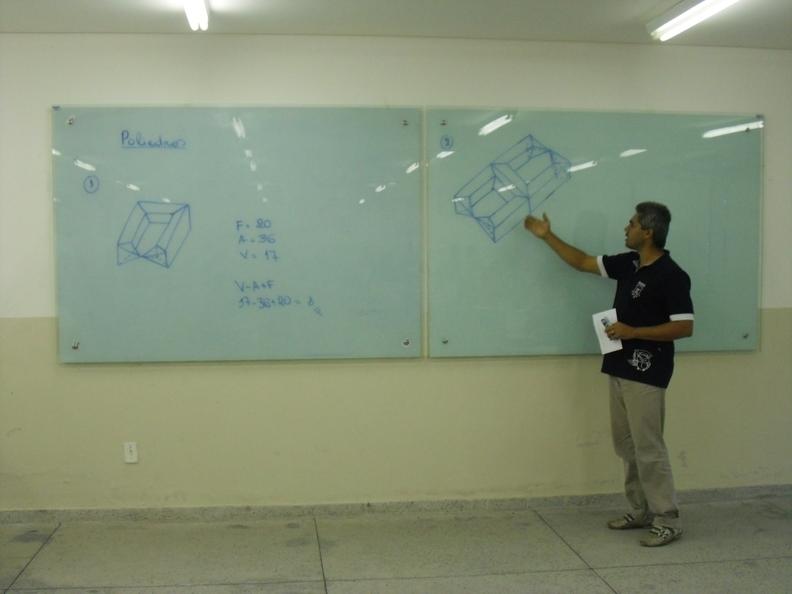 Poliedros
1
F = 20
A = 36
V = 17
V - A + F
17 - 36 + 20 =
2